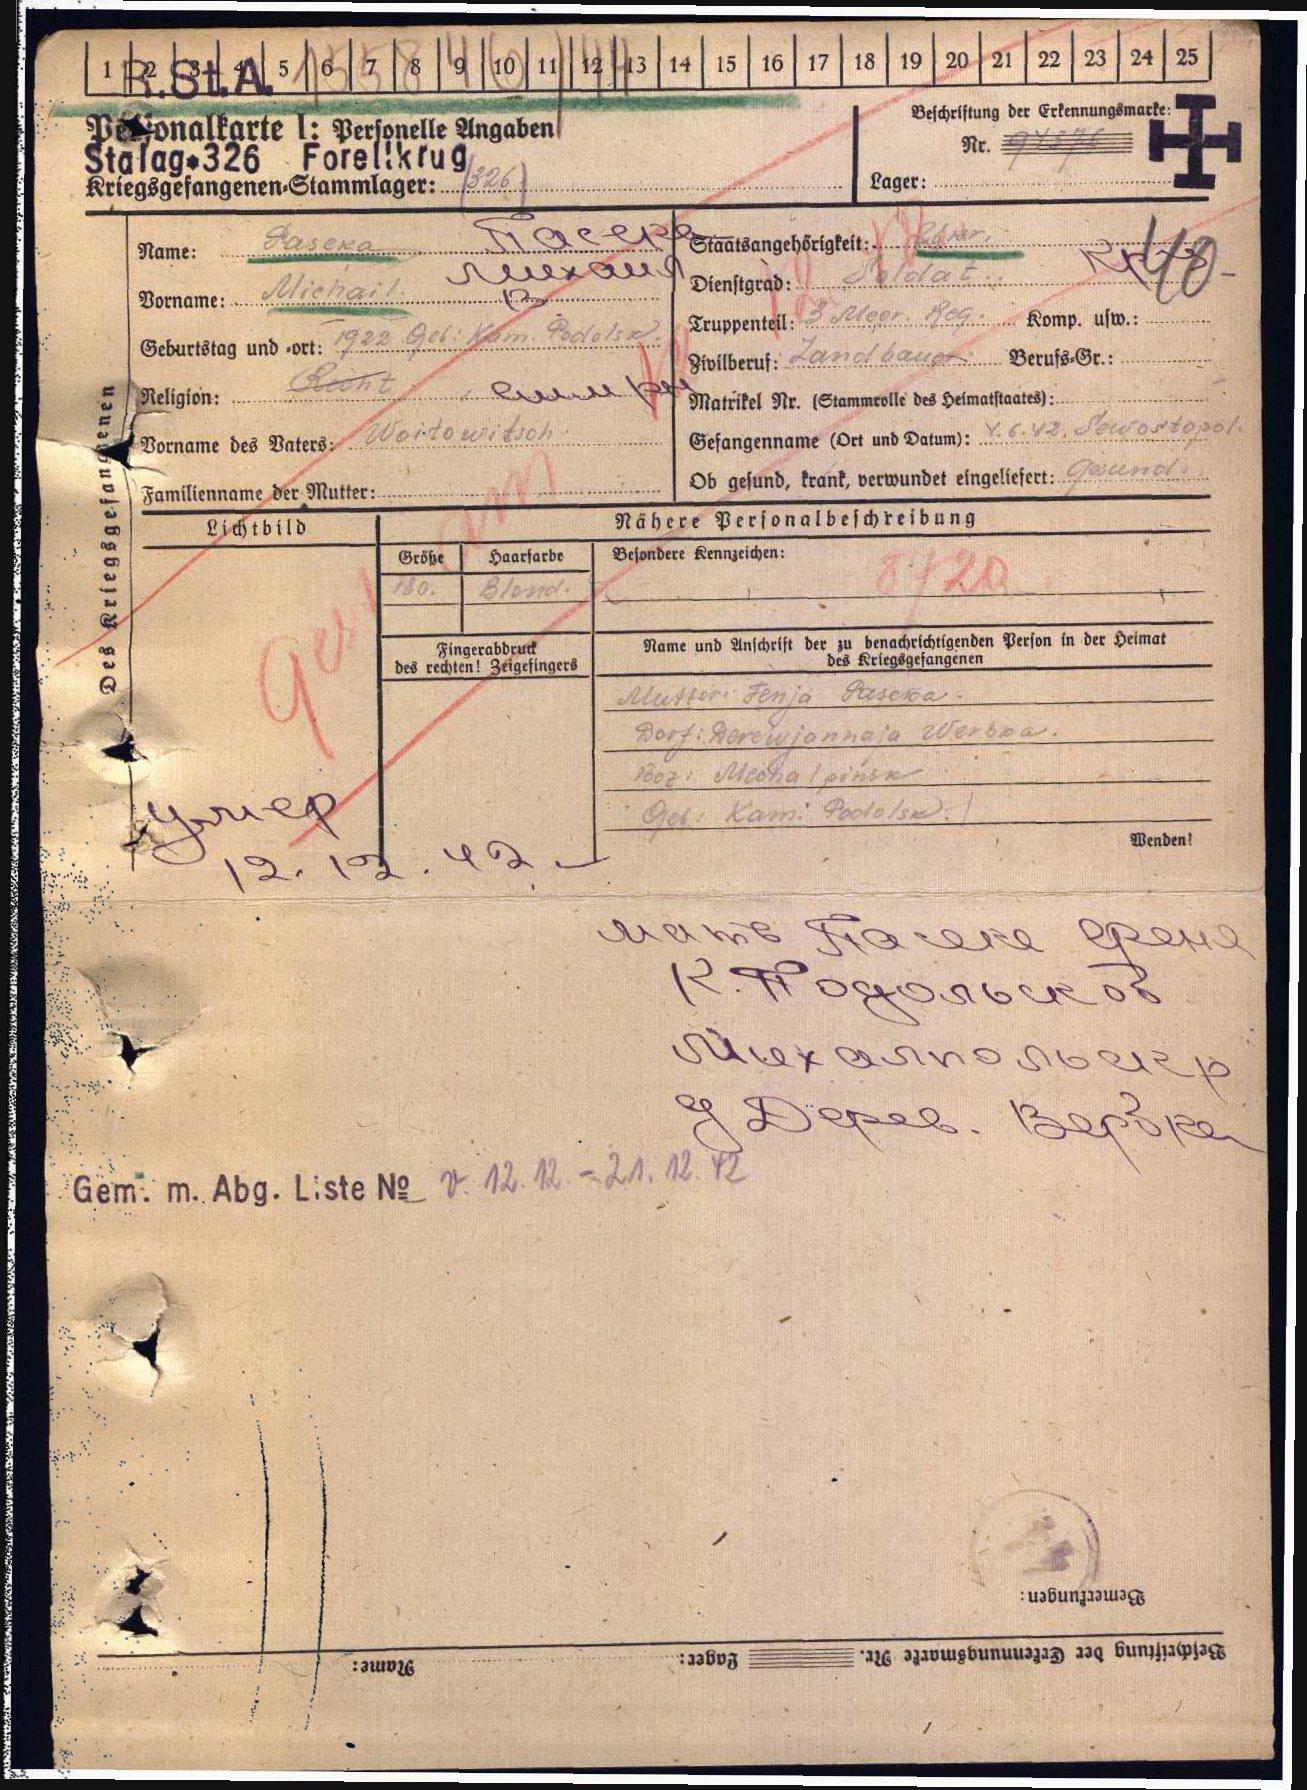 1 2 3 4 5 6 7 8 9 10 11 12 13 14 15 16 17 18 19 20 21 22 23 24 25
R.St.A.
Personalkarte I: Personelle Angaben
Beschriftung der Erkennungsmarke:
Stalag 326 Forellkrug
Nr.
Kriegsgefangenen-Stammlager: (326)
Lager:
Des Kriegsgefangenen
Name: Paseka Пасека
Staatsangehörigkeit: Ukr.
Михаил
Vorname: Michail В.
Dienstgrad: Soldat.
40
Geburtstag und -ort: 1922 Geb: Kam. Podolsk.
Truppenteil: 3 Meer. Reg. Komp. usw.:
Religion:
Zivilberuf: Landbauer Berufs-Gr.:
Matrikel Nr. (Stammrolle des Heimatstaates):
Vorname des Vaters: Woitowitsch
Gefangenname (Ort und Datum): 4.6.42. Sewostopol.
Familienname der Mutter:
Ob gesund, krank, verwundet eingeliefert: Gesund.
Lichtbild
Nähere Personalbeschreibung
Größe Haarfarbe
Besondere Kennzeichen:
180. Blond.
Fingerabdruck
des rechten! Zeigefingers
Name und Anschrift der zu benachrichtigenden Person in der Heimat
des Kriegsgefangenen
Mutter: Fenja Paseka.
Dorf: Derewjannaja Werbka.
Geb: Kam: Podolsk.
Wenden!
умер
12.12.42.
мать Пасека Феня
К. Подольск об
Михалпольск р
Дерев. Вербка
Gem. m. Abg. Liste № v. 12.12. - 21.12.42
Bemerkungen:
Beschriftung der Erkennungsmarke Nr. Lager: Name: